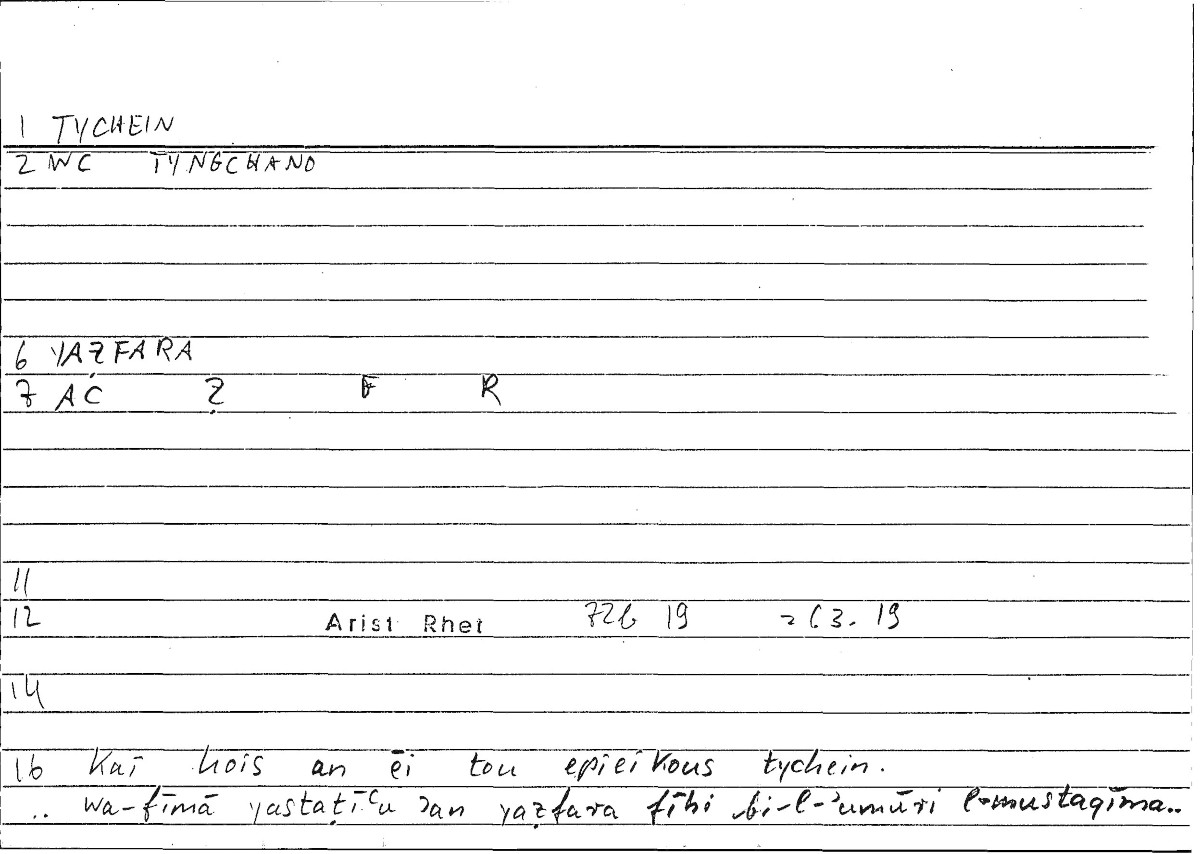 1 TYCHEIN
2 WC TYNGCHANO
6 YAẒFARA
7 AC Ẓ F R
11
12 Arist Rhet 72b 19 = 63. 19
14
16 Kai hois an ēi tou epieikous tychein.
.. wa-fīmā yastaṭīʿu ʾan yaẓfara fīhi bi-l-ʾumūri l-mustaqīma..